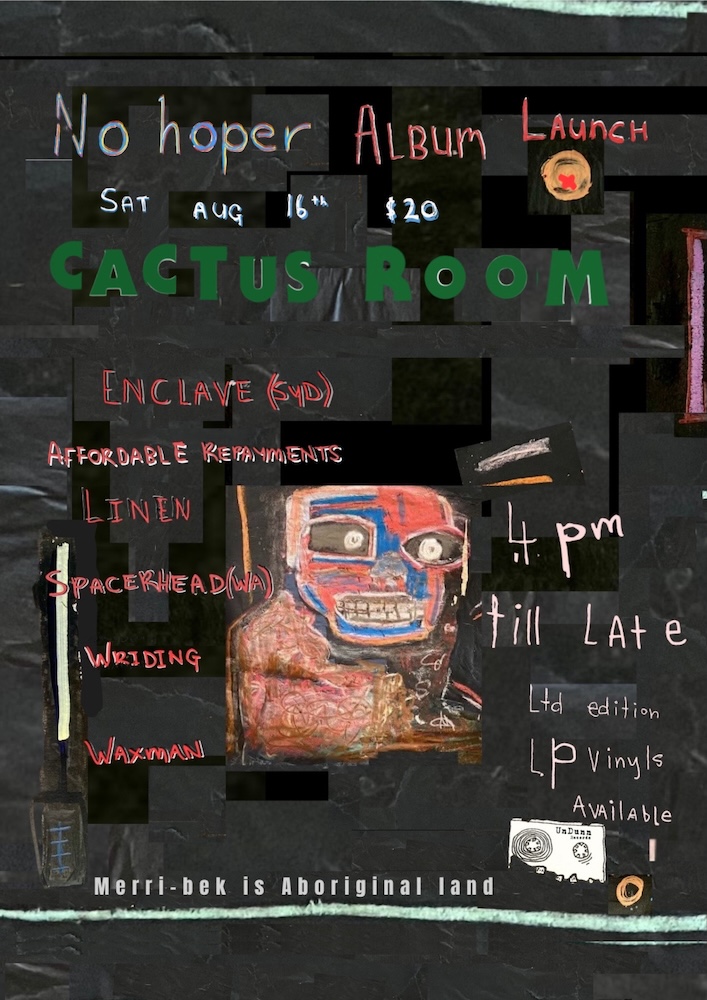 No hoper Album Launch
Sat Aug 16th $20
CACTUS ROOM
ENCLAVE (SYD)
AFFORDABLE REPAYMENTS
LINEN
SPACERHEAD (WA)
WRIDING
WAXMAN
4 pm
till LAte
Ltd edition
LP Vinyls
Available
UnDunn
Records
Merri-bek is Aboriginal land